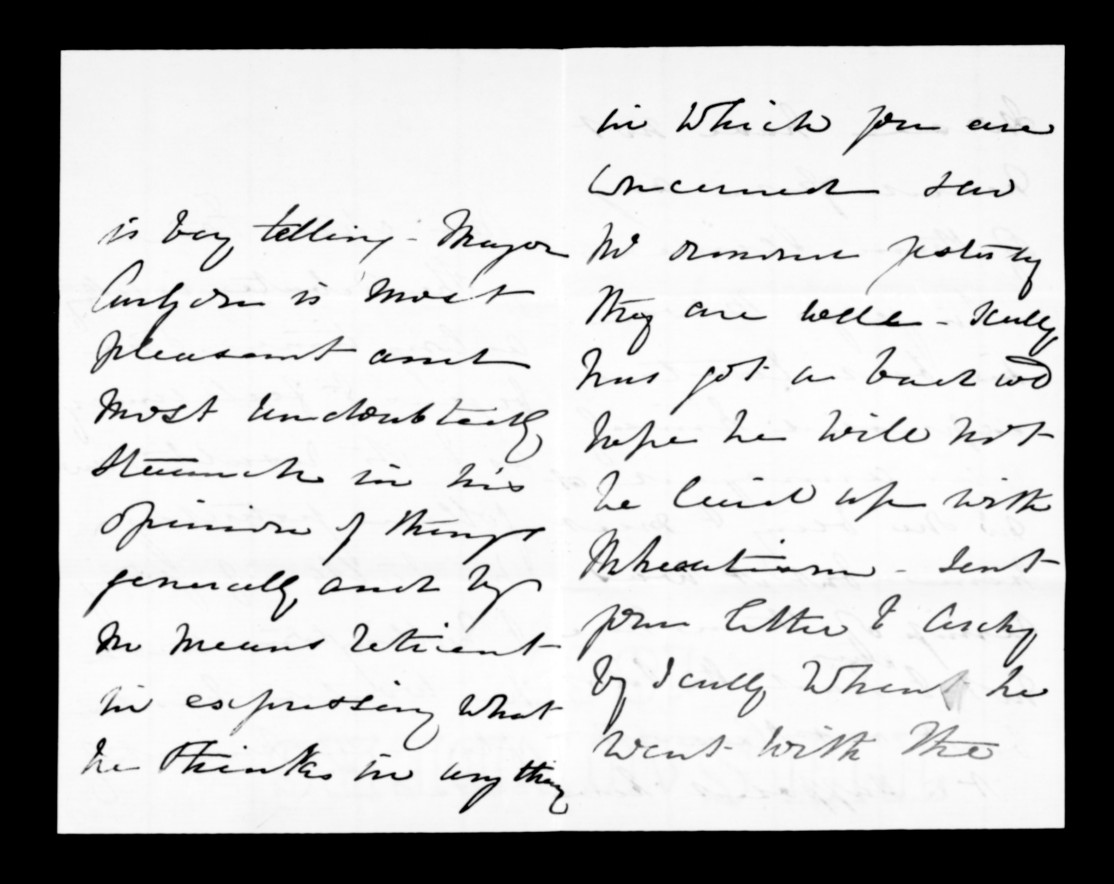 is very telling - Major
is most
pleasant and
most undoubtedly
staunch in his
opinion of things
generally and by
no means reticent
in expressing what
he thinks in anything
in which you are
concerned saw
Mr Ormond yesterday
they are well - Scully
has got a bad cold
hope he will not
be laid up with
Rheumatism - sent
your letter to Archy
by Scully when he
went with the